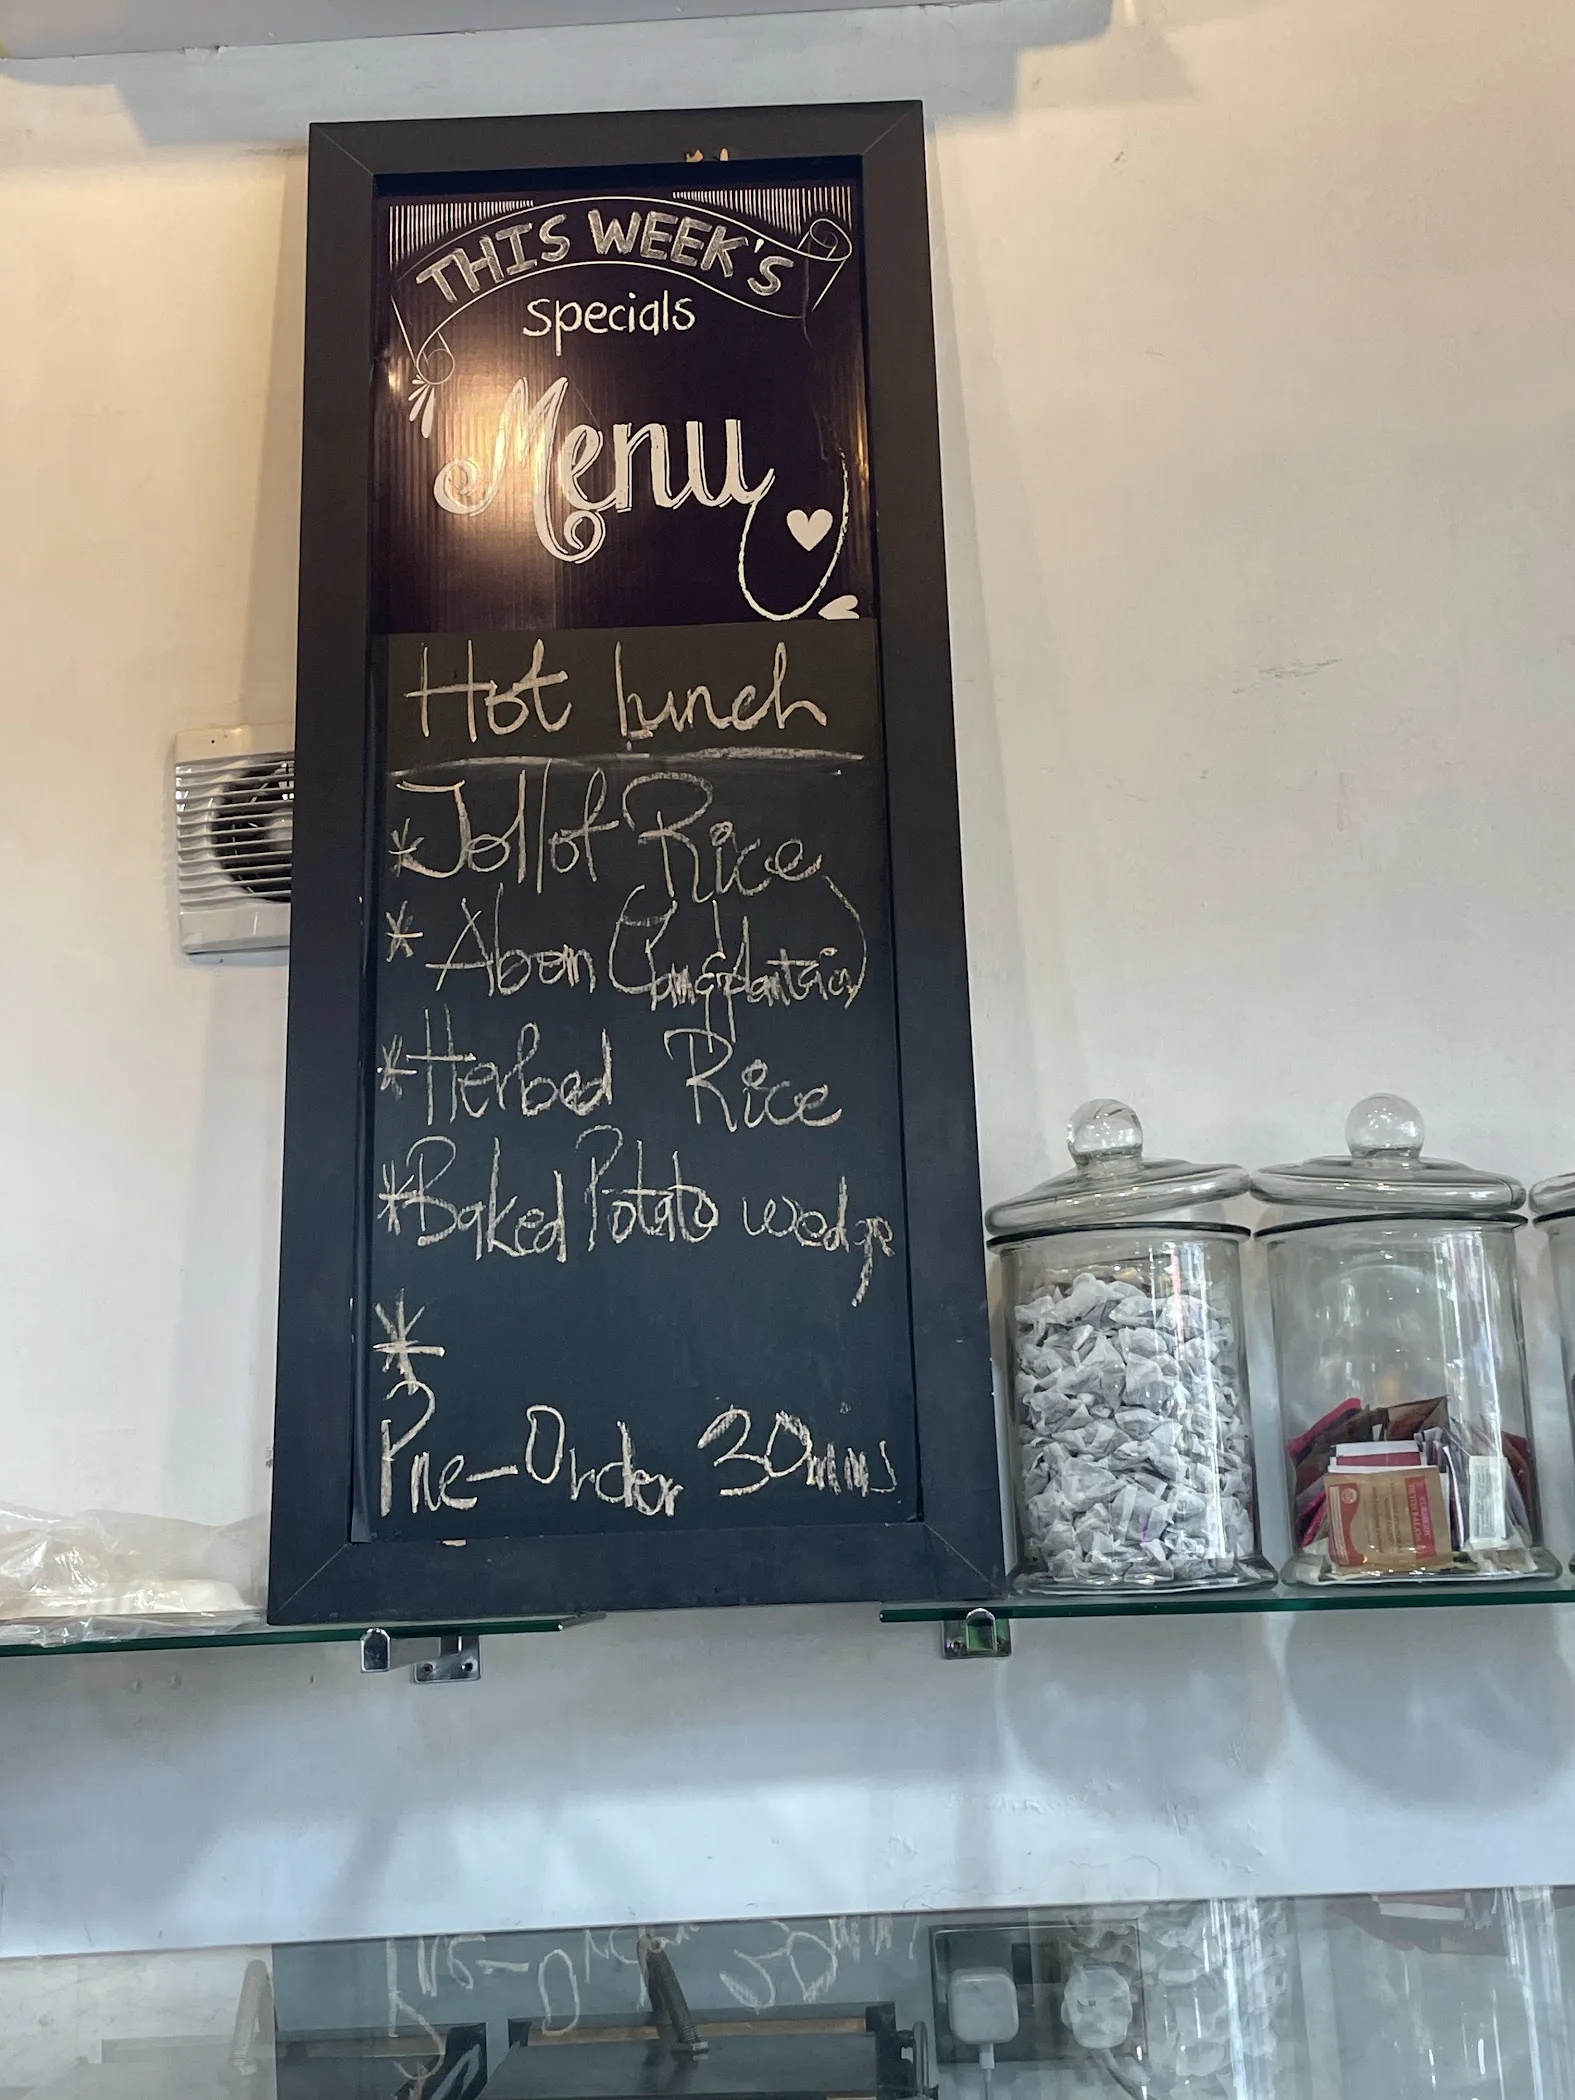 THIS WEEK'S
specials
Menu
Hot lunch
* Jollof Rice
* Abom (Yam & plantain)
* Herbed Rice
* Baked Potato wedge
*
Pre-Order 30mins